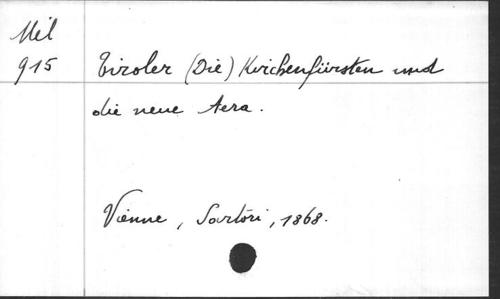 Mil
915
Tiroler (Die) Kirchenfürsten und
die neue Aera.
Vienne, Sartori, 1868.